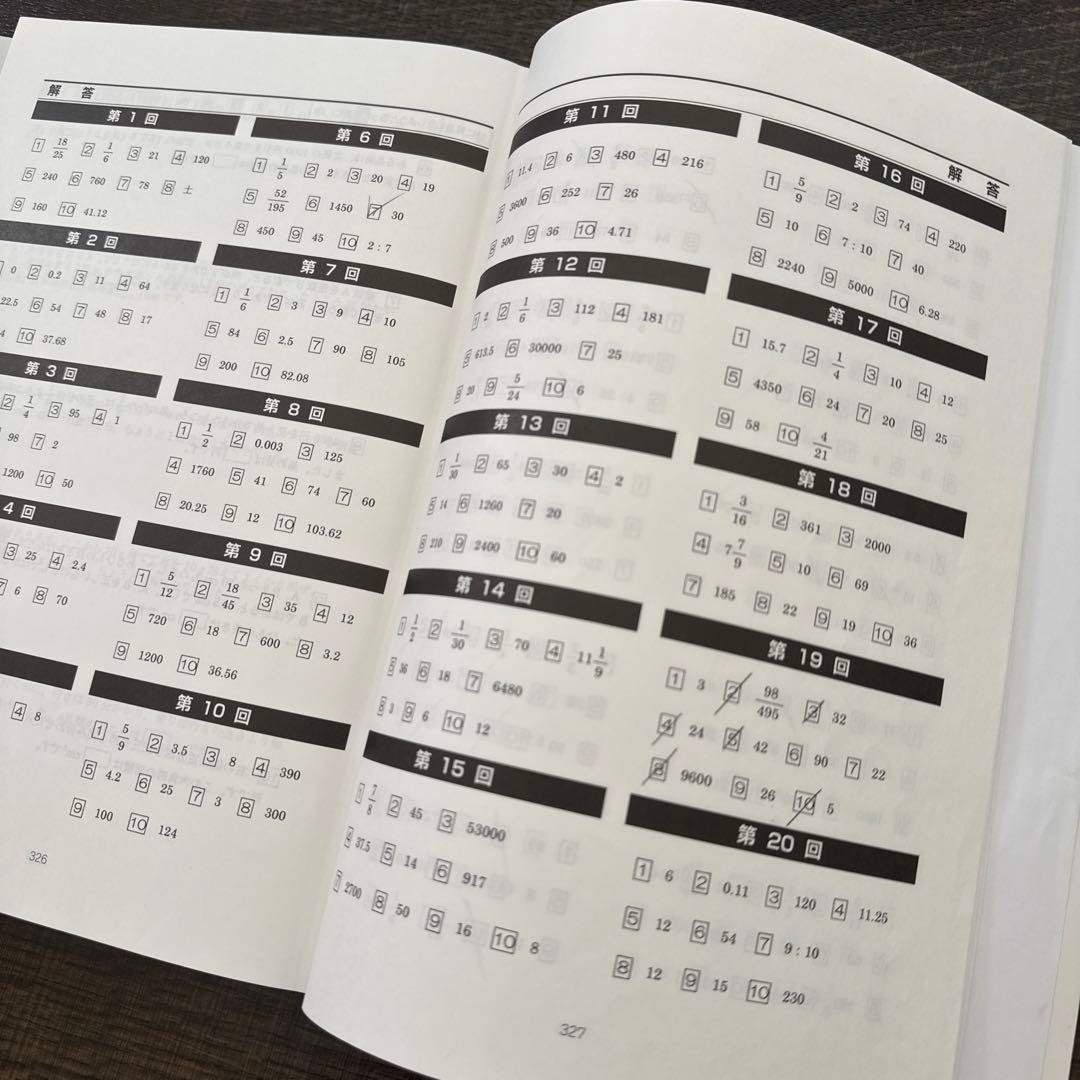 解 答
第 1 回
1 18/25 2 1/6 3 21 4 120
5 240 6 760 7 78 8 土
9 160 10 41.12
第 2 回
0 2 0.2 3 11 4 64
22.5 6 54 7 48 8 17
4 10 37.68
第 3 回
2 1/4 3 95 4 1
98 7 2
1200 10 50
4 回
3 25 4 2.4
7 6 8 70
4 8
第 6 回
1 1/5 2 2 3 20 4 19
5 52/195 6 1450 7 30
8 450 9 45 10 2 : 7
第 7 回
1 1/6 2 3 3 9 4 10
5 84 6 2.5 7 90 8 105
9 200 10 82.08
第 8 回
1 1/2 2 0.003 3 125
4 1760 5 41 6 74 7 60
8 20.25 9 12 10 103.62
第 9 回
1 5/12 2 18/45 3 35 4 12
5 720 6 18 7 600 8 3.2
9 1200 10 36.56
第 10 回
1 5/9 2 3.5 3 8 4 390
5 4.2 6 25 7 3 8 300
9 100 10 124
326
解 答
第 11 回
1 11.4 2 6 3 480 4 216
5 3600 6 252 7 26
8 500 9 36 10 4.71
第 12 回
1 2 2 1/6 3 112 4 181
5 613.5 6 30000 7 25
8 20 9 5/24 10 6
第 13 回
1 1/30 2 65 3 30 4 2
5 14 6 1260 7 20
8 210 9 2400 10 60
第 14 回
1 1/2 2 1/30 3 70 4 11 1/9
5 36 6 18 7 6480
8 3 9 6 10 12
第 15 回
1 7/8 2 45 3 53000
4 37.5 5 14 6 917
7 2700 8 50 9 16 10 8
第 16 回
1 5/9 2 2 3 74 4 220
5 10 6 7 : 10 7 40
8 2240 9 5000 10 6.28
第 17 回
1 15.7 2 1/4 3 10 4 12
5 4350 6 24 7 20 8 25
9 58 10 4/21
第 18 回
1 3/16 2 361 3 2000
4 7 7/9 5 10 6 69
7 185 8 22 9 19 10 36
第 19 回
1 3 2 98/495 3 32
4 24 5 42 6 90 7 22
8 9600 9 26 10 5
第 20 回
1 6 2 0.11 3 120 4 11.25
5 12 6 54 7 9 : 10
8 12 9 15 10 230
327